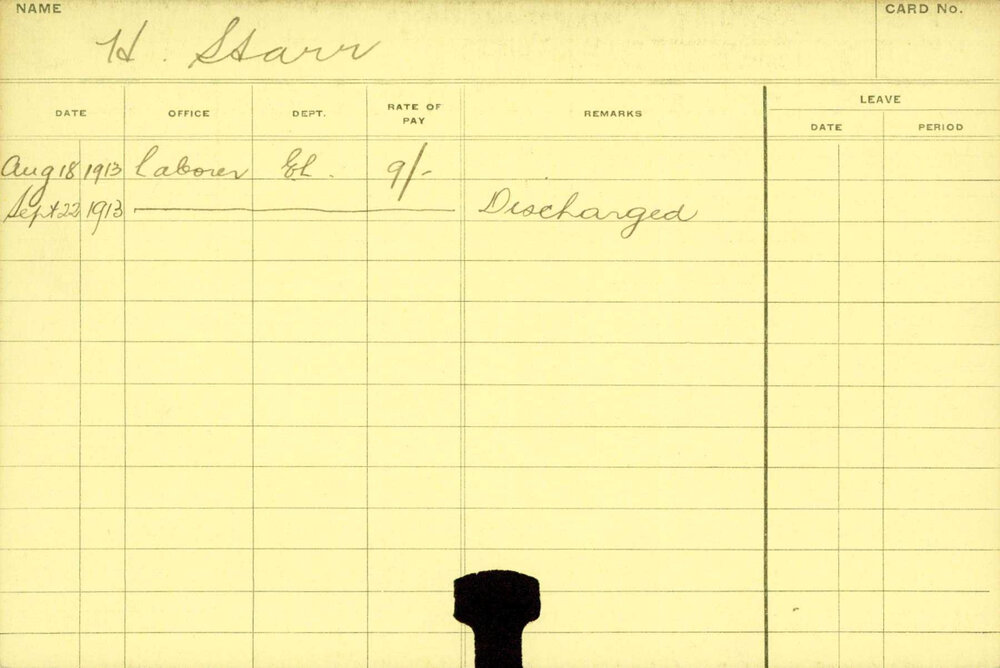 NAME
CARD No.
H. Starr
DATE OFFICE DEPT. RATE OF PAY REMARKS LEAVE
DATE PERIOD
Aug 18 1913 Laborer El. 9/-
Sept 22 1913 Discharged